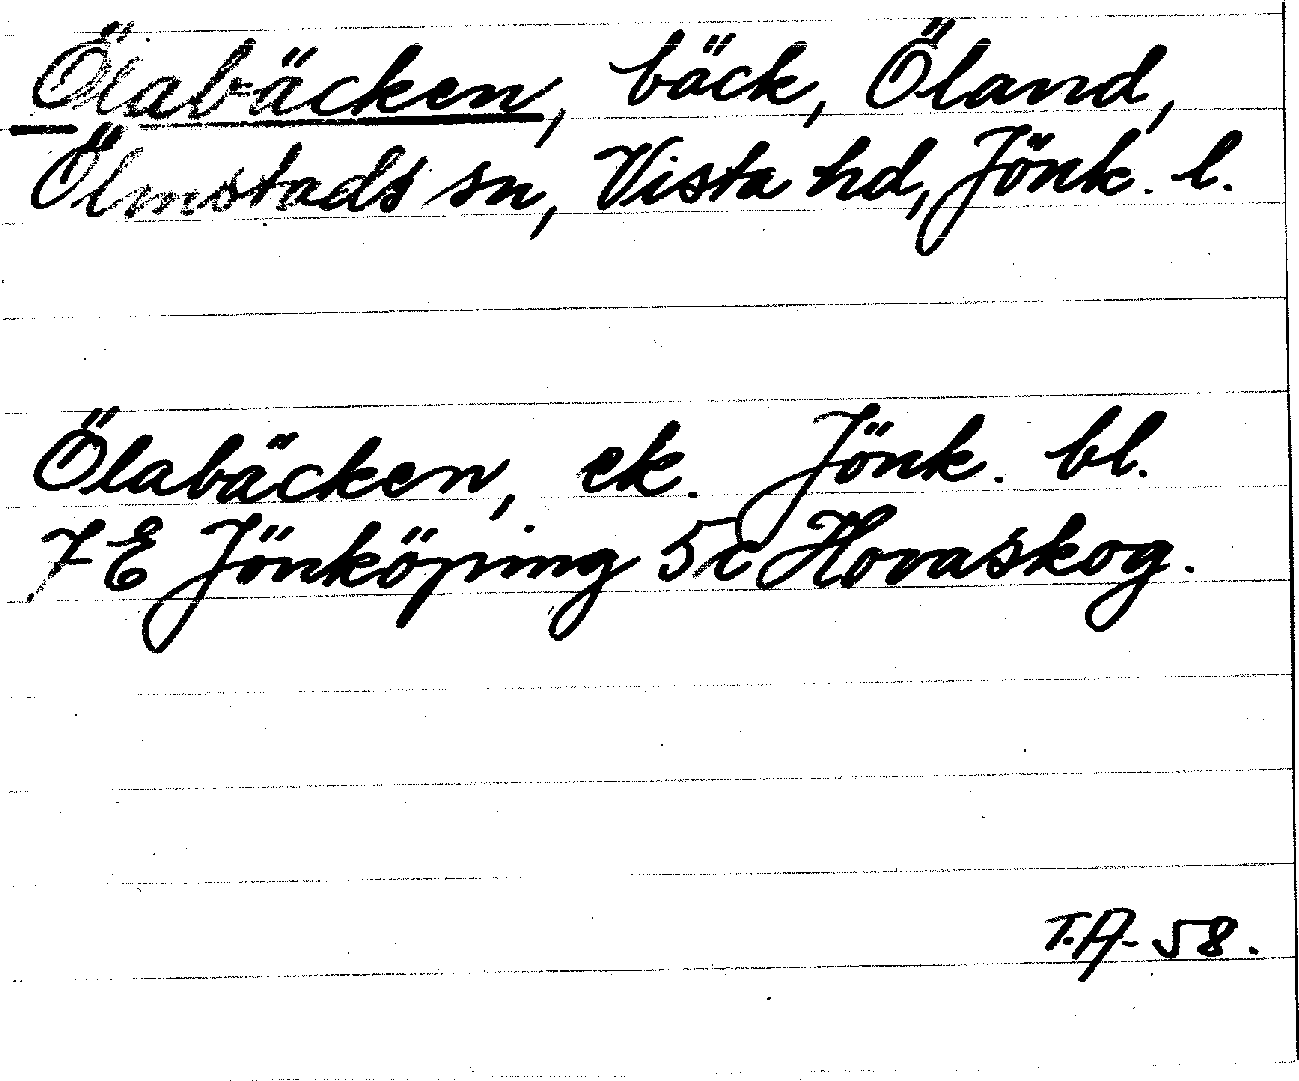 Ölabäcken, bäck, Öland,
Ölmstads sn, Vista hd, Jönk. l.
Ölabäcken, ek. Jönk. bl.
7 E Jönköping 5c Hovaskog.
T.A. 58.